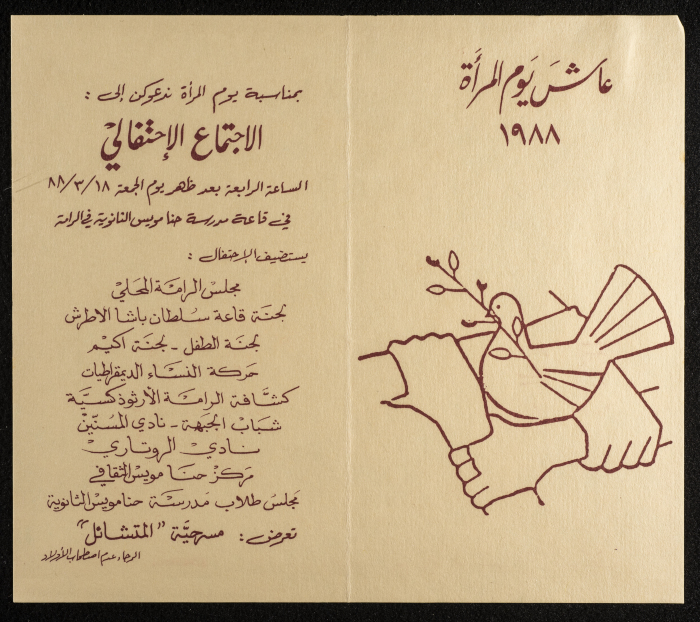 عاشَ يَوم المرأة
١٩٨٨
بمناسبة يوم المرأة ندعوكن إلى :
الاجتماع الإحتفالي
الساعة الرابعة بعد ظهر يوم الجمعة ٨٨/٣/١٨
في قاعة مدرسة حنا مويس الثانوية في الرامة
يستضيف الإحتفال :
مجلس الرامة المحلي
لجنة قاعة سلطان باشا الاطرش
لجنة الطفل - لجنة اكيم
حركة النساء الديمقراطيات
كشافة الرامة الأرثوذكسيَّة
شباب الجبهة - نادي المسنّين
نادي الروتاري
مركز حنا مويس الثقافي
مجلس طلاب مدرسة حنا مويس الثانوية
تعرض : مسرحيَّة "المتشائل"
الرجاء عدم اصطحاب الأولاد